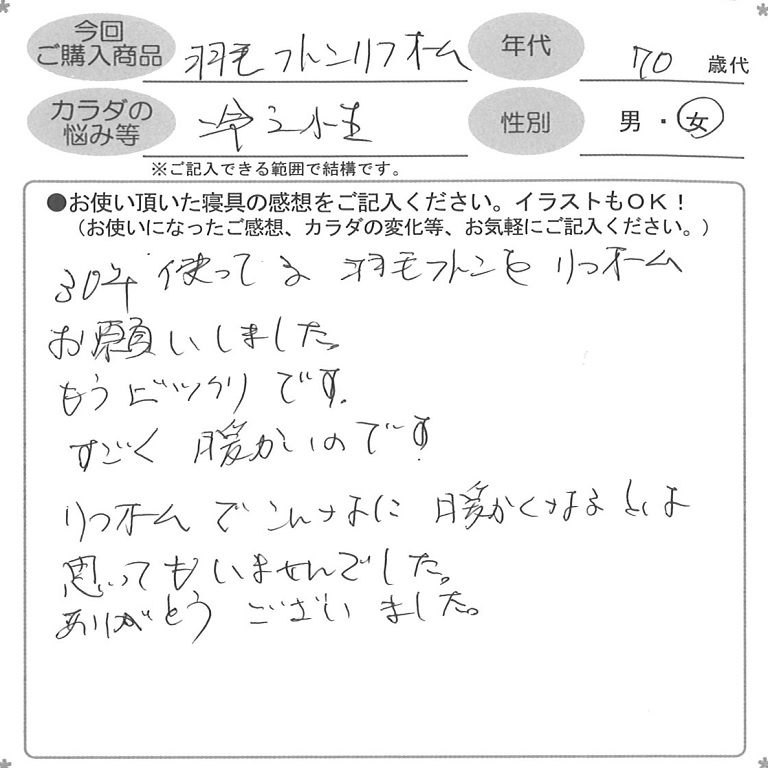 今回
ご購入商品 羽毛フトンリフォーム
年代 70 歳代
カラダの
悩み等 冷え性
性別 男・女
※ご記入できる範囲で結構です。
●お使い頂いた寝具の感想をご記入ください。イラストもOK!
(お使いになったご感想、カラダの変化等、お気軽にご記入ください。)
30年 使ってる 羽毛フトンを リフォーム
お願いしました。
もう ビックリ です。
すごく 暖かいのです
リフォーム で こんなに 暖かくなるとは
思ってもいませんでした。
ありがとう ございました。